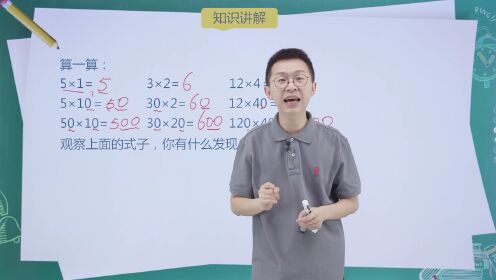 知识讲解
算一算：
5×1=5 3×2=6 12×4=
5×10=50 30×2=60 12×40=
50×10=500 30×20=600 120×4
观察上面的式子，你有什么发现